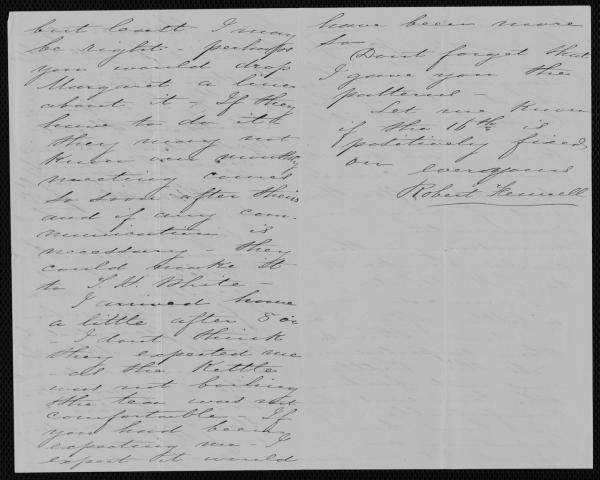 but I may
be right - perhaps
you would drop
Margaret a line
about it - If they
have to do it
they may not
know our monthly
meeting comes
so soon after theirs
and if any com-
munication is
necessary - they
could make it
to T. H. White -
I arrived home
a little after 8 oc
- I dont think
they expected me
- as the Kettle
was not boiling
the tea was not
comfortable - If
you had been
expecting me - I
expect it would
have been more
so -
Dont forget that
I gave you the
patterns -
Let me know
if the 16th is
positively fixed,
or
ever yours
Robert